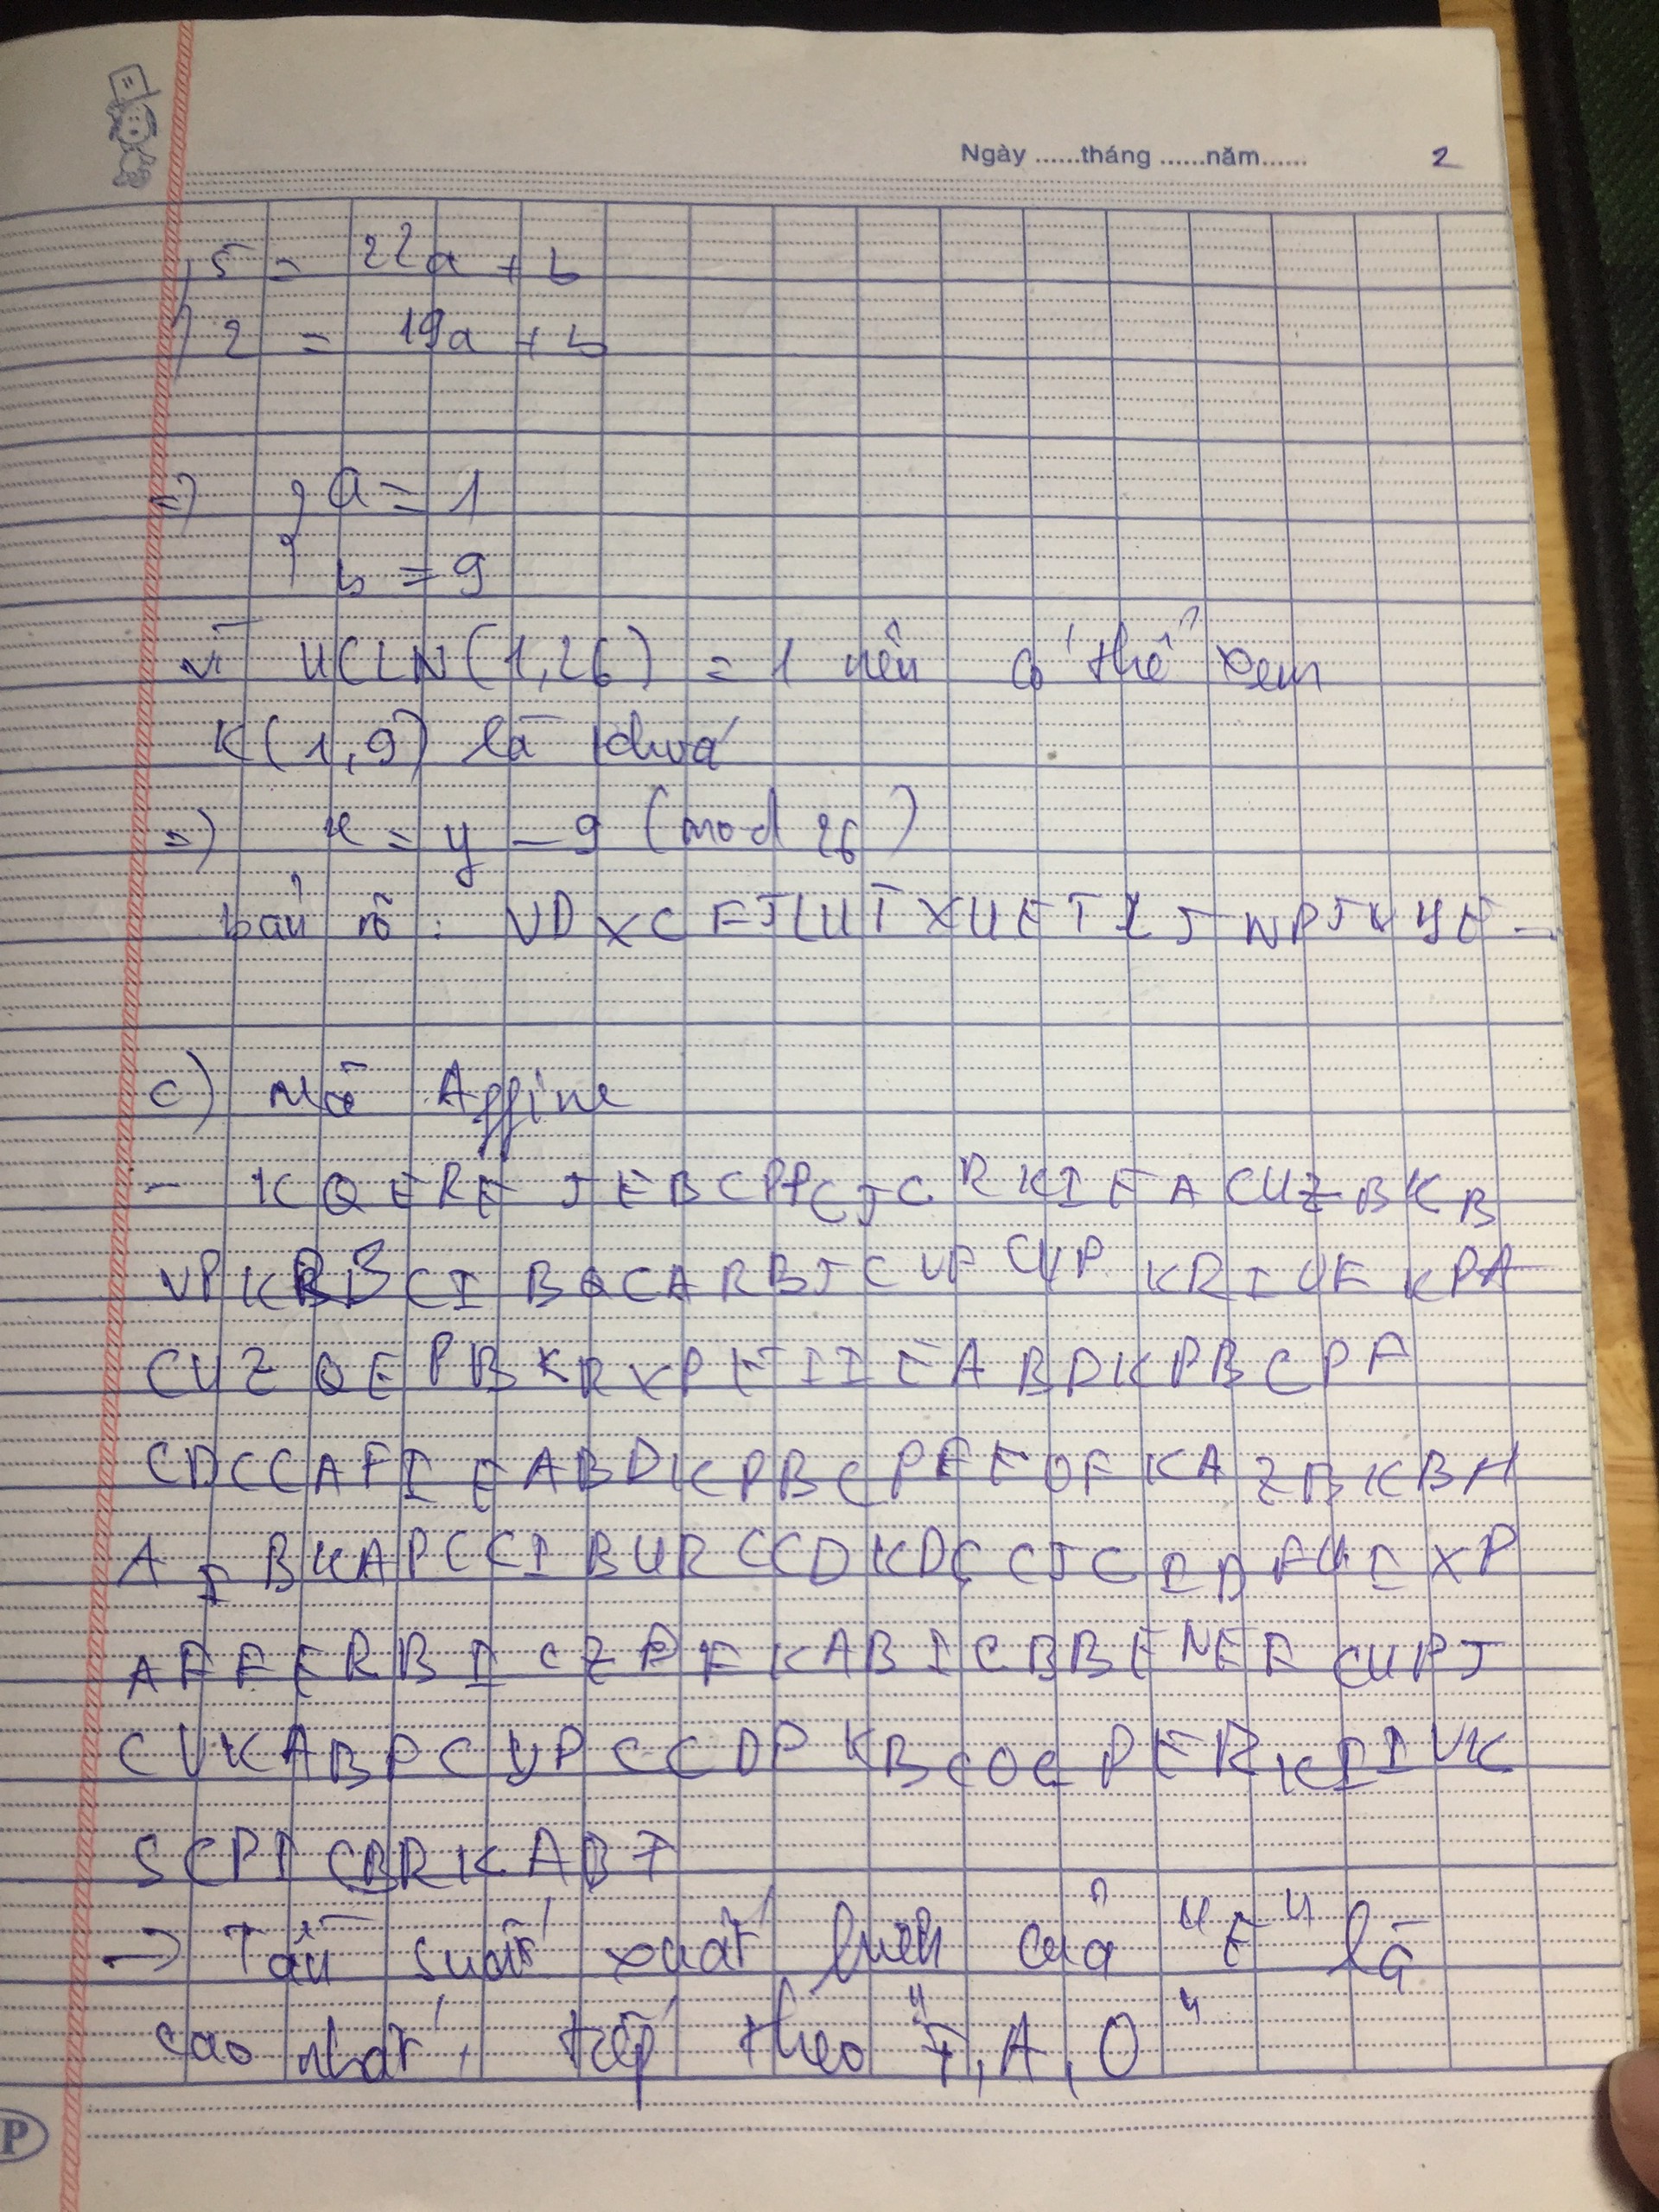 Ngày ......tháng ......năm...... 2
5 = 22a + b
2 = 19a + b
=> a = 1
b = 9
Vì UCLN(1,26) = 1 nên có thể xem
K(1,9) là khoá
=> x = y - 9 (mod 26)
bản rõ : VDXCFJLUTXUETIJNPJVYE
c) Mã Affine
- KQEREJEBCPPCJCRKIEACUZBKB
VPKRBCIBQCARBJCVFCUPKRIOFKPA
CUZQEPBKRXPEIIEABDKPBCPF
CDCCAFIEABDKCPBCPFEOFKAZBKBH
AIBKAPCCIBURCCDKDCCJCIDFUIXP
AFFERBICZPFKABICBBENEFCUPJ
CVKABPCYPCCDPKBCOCPERKIIVK
SCPICBRKABJ
-> Tần suất xuất hiện của "E" là
cao nhất, tiếp theo "T, A, O"
P